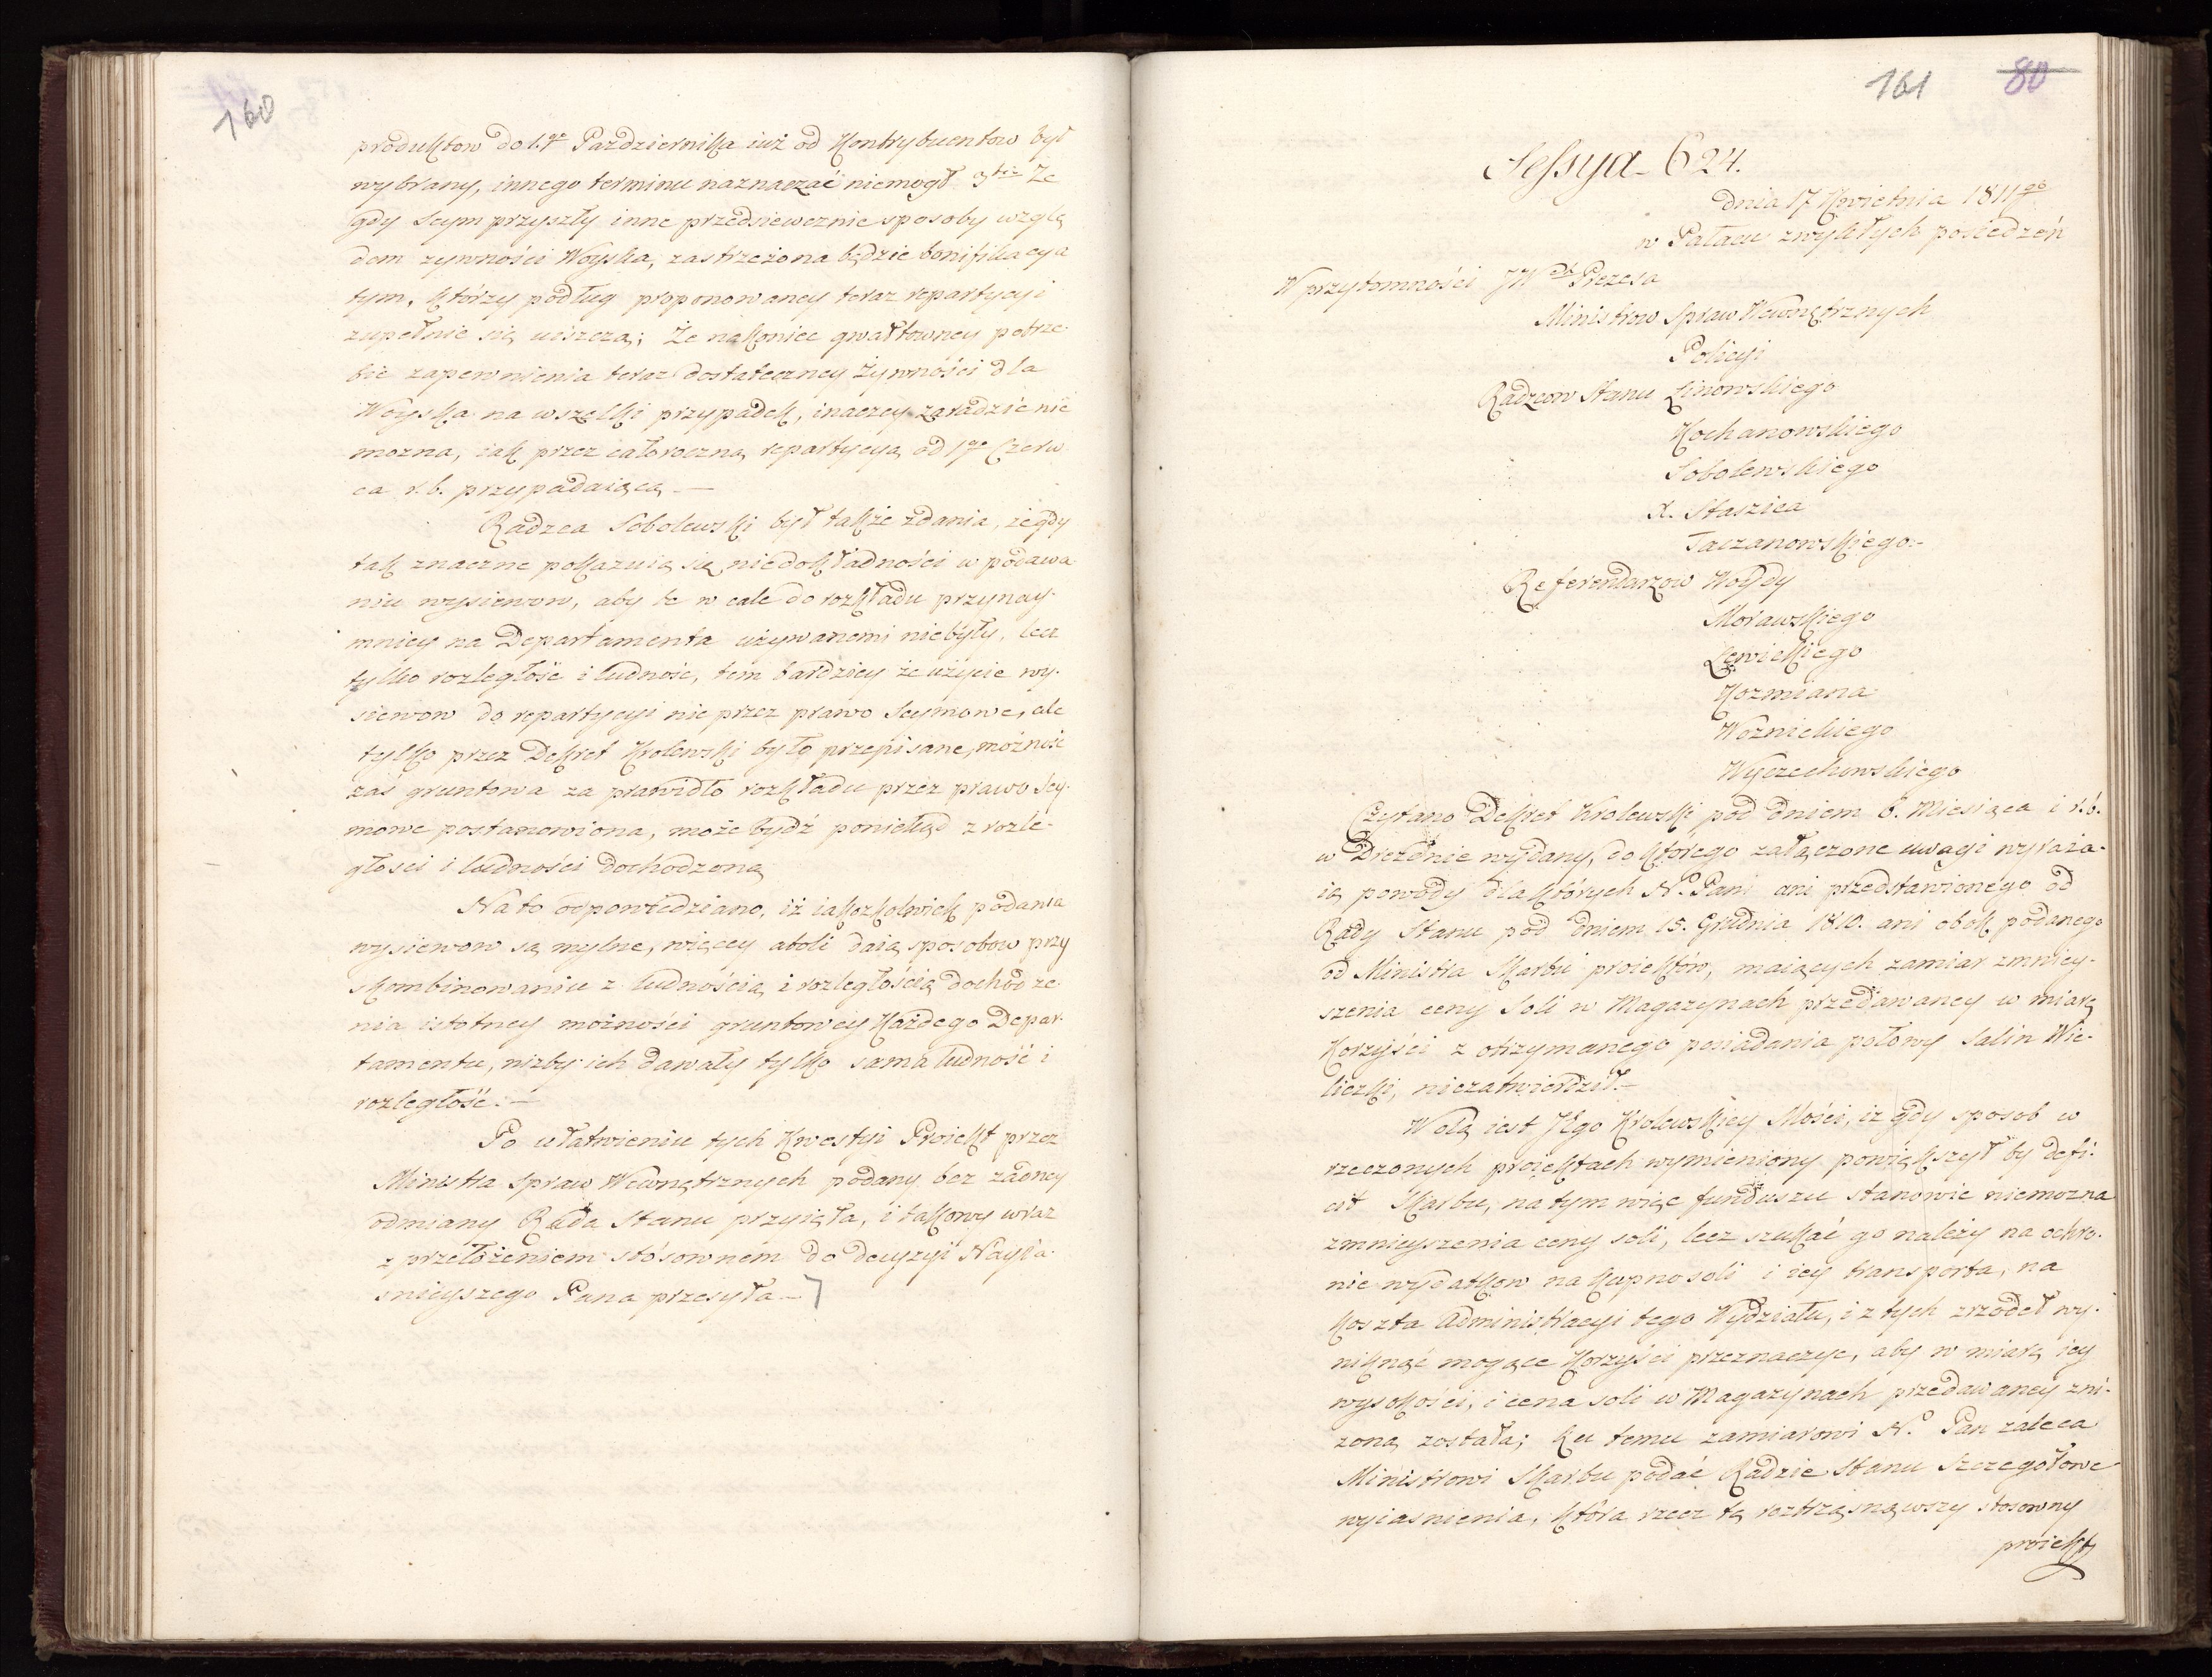 160
produktow do 1.go Pazdziernika iuż od Kontrybuentow był
wybrany, innego terminu naznaczać niemogł 3tio Że
gdy Seym przyszły inne przedsieweznie sposoby wzglę
dem zywności Woyska, zastrzeżona będzie bonifikacya
tym, którzy podług proponowaney teraz repartycyi
zupełnie się uiszczą; Że nakoniec gwałtowney potrze-
bie zapewnienia teraz dostateczney żywności dla
Woyska na wszelki przypadek, inaczey zaradzić nie
mozna, iak przez całoroczną repartycyą od 1go Czerw
ca r.b. przypadaiącą.—
Radzca Sobolewski był także zdania, że gdy
tak znaczne pokazuią się niedokładności w podawa
niu wysiewow, aby te w cale do rozkładu przynay-
mniey na Departamenta używanemi niebyły, lecz
tylko rozległość i ludność, tem bardziey że użycie wy-
siewow do repartycyi nie przez prawo Seymowe, ale
tylko przez Dekret Krolewski było przepisane, możność
zaś gruntowa za prawidło rozkładu przez prawo Sey-
mowe postanowiona, może bydź poniekąd z rozle-
głosci i ludności dochodzoną
Na to odpowiedziano, iż iakozkolwiek podania
wysiewow są mylne, więcey atoli daią sposobow przy
skombinowaniu z ludnością i rozległością dochodze-
nia istotney możności gruntowey Każdego Depar-
tamentu, nizby ich dawały tylko sama ludność i
rozległość.—
Po ułatwieniu tych Kwestyi Proiekt przez
Ministra Spraw Wewnętrznych podany bez żadney
odmiany Rada Stanu przyięła, i takowy wraz
z przełożeniem stósowném do decyzyi Nayia-
snieyszego Pana przesyła.—
161 80
Sessya 624.
dnia 17 Kwietnia 1811go
w Pałacu zwykłych posiedzeń
W przytomności JWch Prezesa
Ministrow Spraw Wewnętrznych
Policyi
Radzcow Stanu Linowskiego
Kochanowskiego
Sobolewskiego
X. Staszica
Taczanowskiego.—
Referendarzow Woydy
Morawskiego
Lewickiego
Kozmiana
Woznickiego
Wyczechowskiego
Czytano Dekret Krolewski pod dniem 6. Miesiąca i r.b.
w Dreznie wydany, do którego załączone uwagi wyraża-
ią powody dla których N. Pan ani przedstawionego od
Rady Stanu pod dniem 15. Grudnia 1810. ani obok podanego
od Ministra Skarbu proiektów, maiących zamiar zmniey-
szenia ceny Soli w Magazynach przedawaney w miarę
Korzyści z otrzymanego posiadania połowy Salin Wie-
liczki, niezatwierdził.—
Wolą iest JEgo Krolewskiey Mości, iz gdy sposob w
rzeczonych proiektach wymieniony powiększył by defi-
cit Skarbu, na tym więc funduszu stanowić niemozna
zmnieyszenia ceny soli, lecz szukać go należy na ochro-
nie wydatkow na kupno soli i iey transporta, na
koszta Administracyi tego Wydziału, i z tych zrzodeł wy-
niknąć mogące Korzyści przeznaczyć, aby w miarę iey
wysokości, i cena soli w Magazynach przedawaney zni-
zoną została; Ku temu zamiarowi N. Pan zaleca
Ministrowi Skarbu podać Radzie Stanu Szczegołowe
wyiasnienia, która rzecz tę roztrząsnąwszy stosowny
proiekt